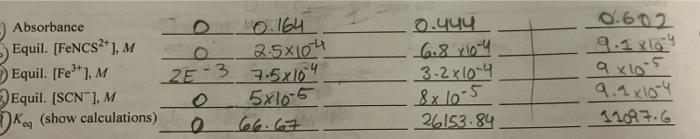 Absorbance 0 0.164 0.444 0.602
Equil. [FeNCS²⁺], M 0 2.5x10⁻⁴ 6.8 x10⁻⁴ 9.1 x10⁻⁴
Equil. [Fe³⁺], M 2E-3 7.5x10⁻⁴ 3.2x10⁻⁴ 9 x10⁻⁵
Equil. [SCN⁻], M 0 5x10⁻⁵ 8x10⁻⁵ 9.1x10⁻⁴
Keq (show calculations) 0 66.67 26153.84 11097.6